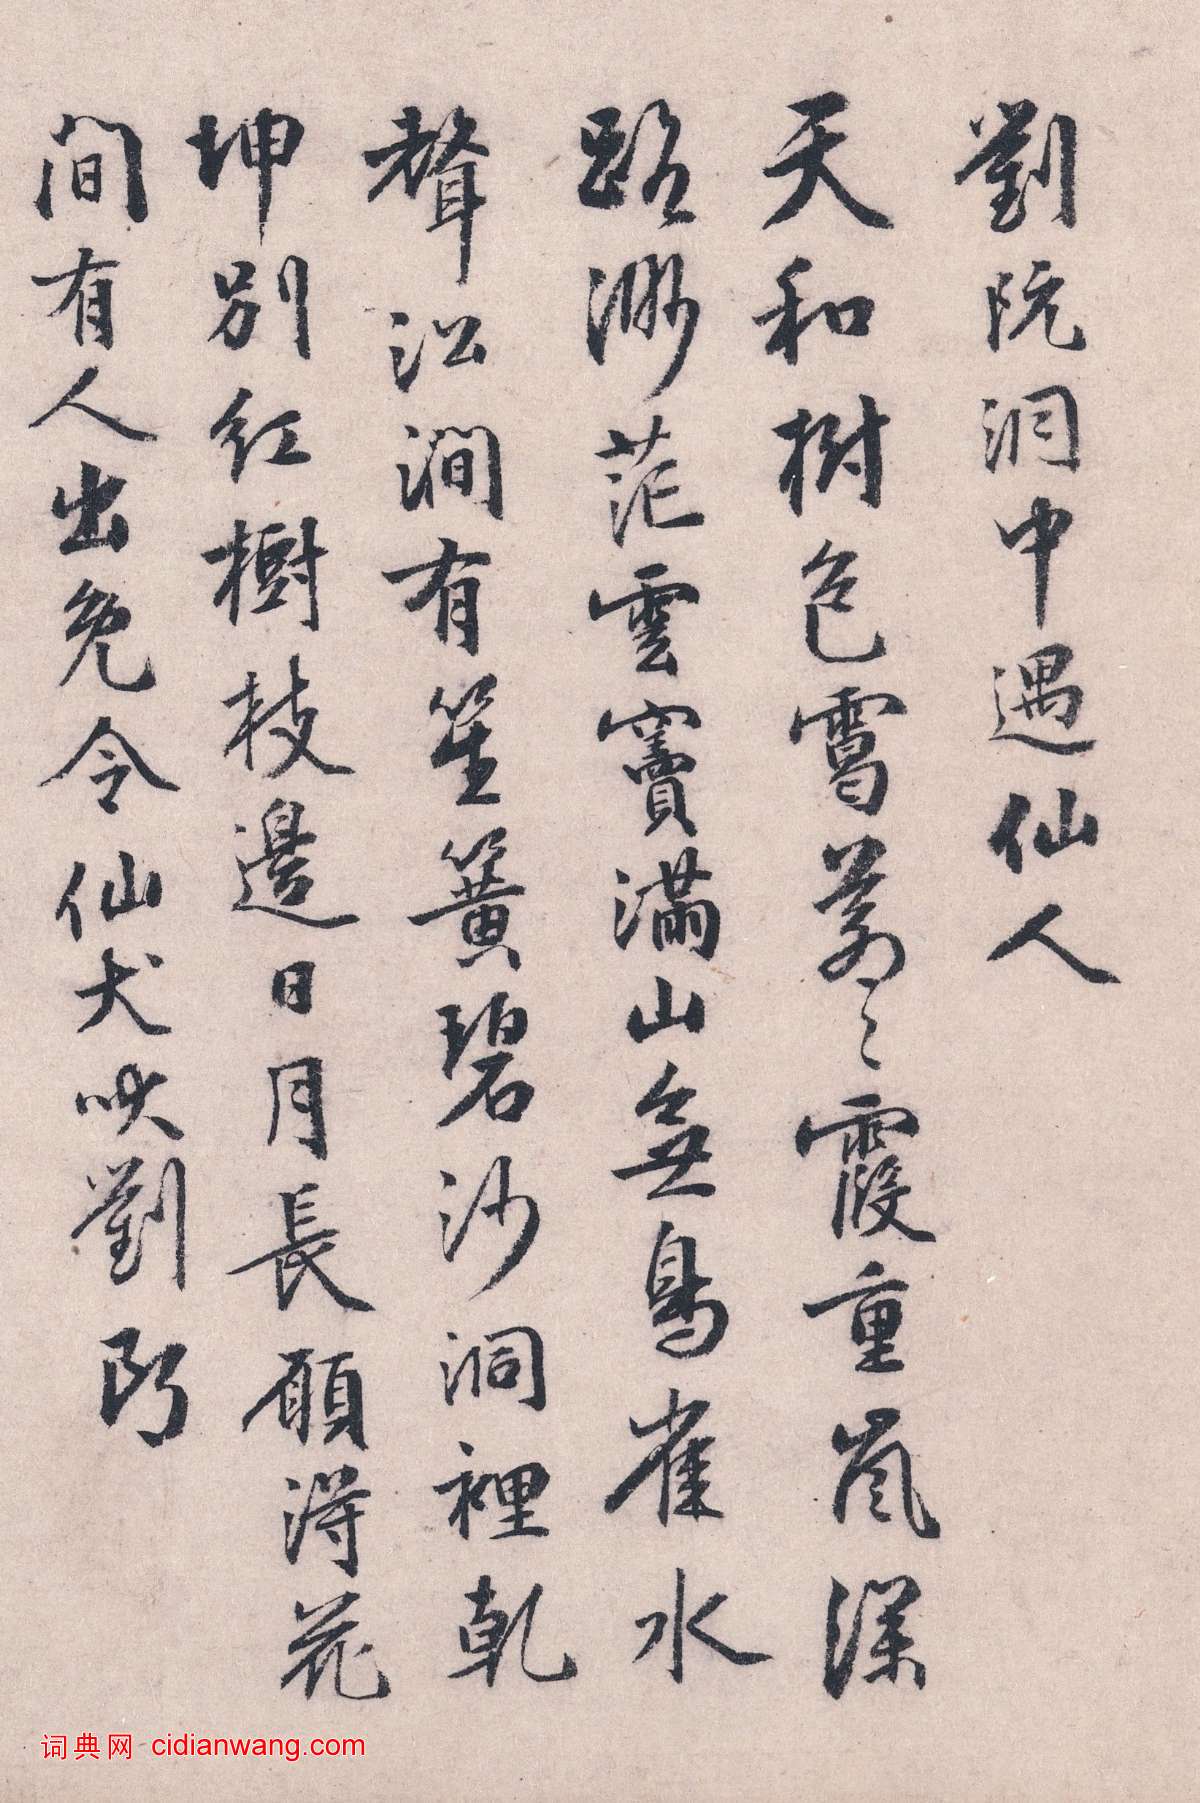 劉阮洞中遇仙人
天和樹色靄蒼〻霞重嵐深
路渺茫雲竇滿山無鳥雀水
聲沿澗有笙簧碧沙洞裡乾
坤別紅樹枝邊日月長願得花
間有人出免令仙犬吠劉郎
词典网 cidianwang.com